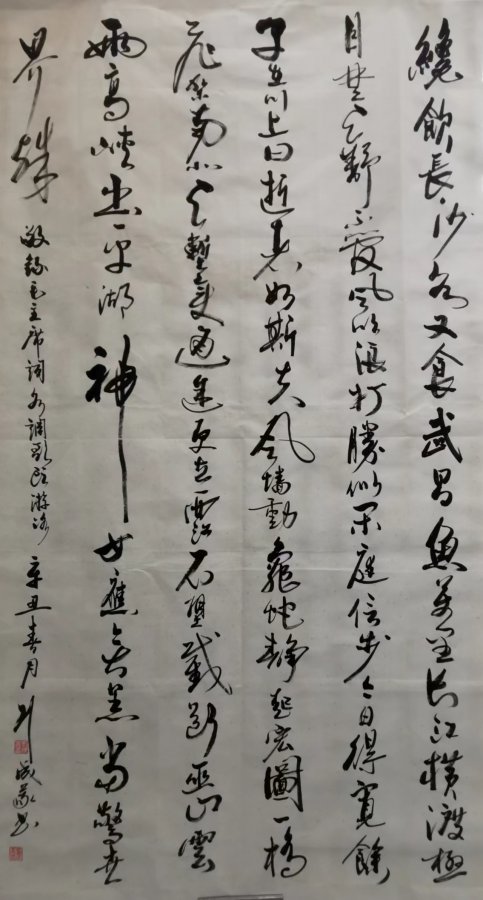 纔飲長沙水又食武昌魚萬里長江橫渡極
目楚天舒不管風吹浪打勝似閑庭信步今日得寬餘
子在川上曰逝者如斯夫風墻動龜蛇靜起宏圖一橋
飛架南北天塹變通途更立西江石壁截斷巫山雲
雨高峽出平湖神女應無恙當驚世
界殊 敬錄毛主席詞水調歌頭游泳 辛丑春月 書